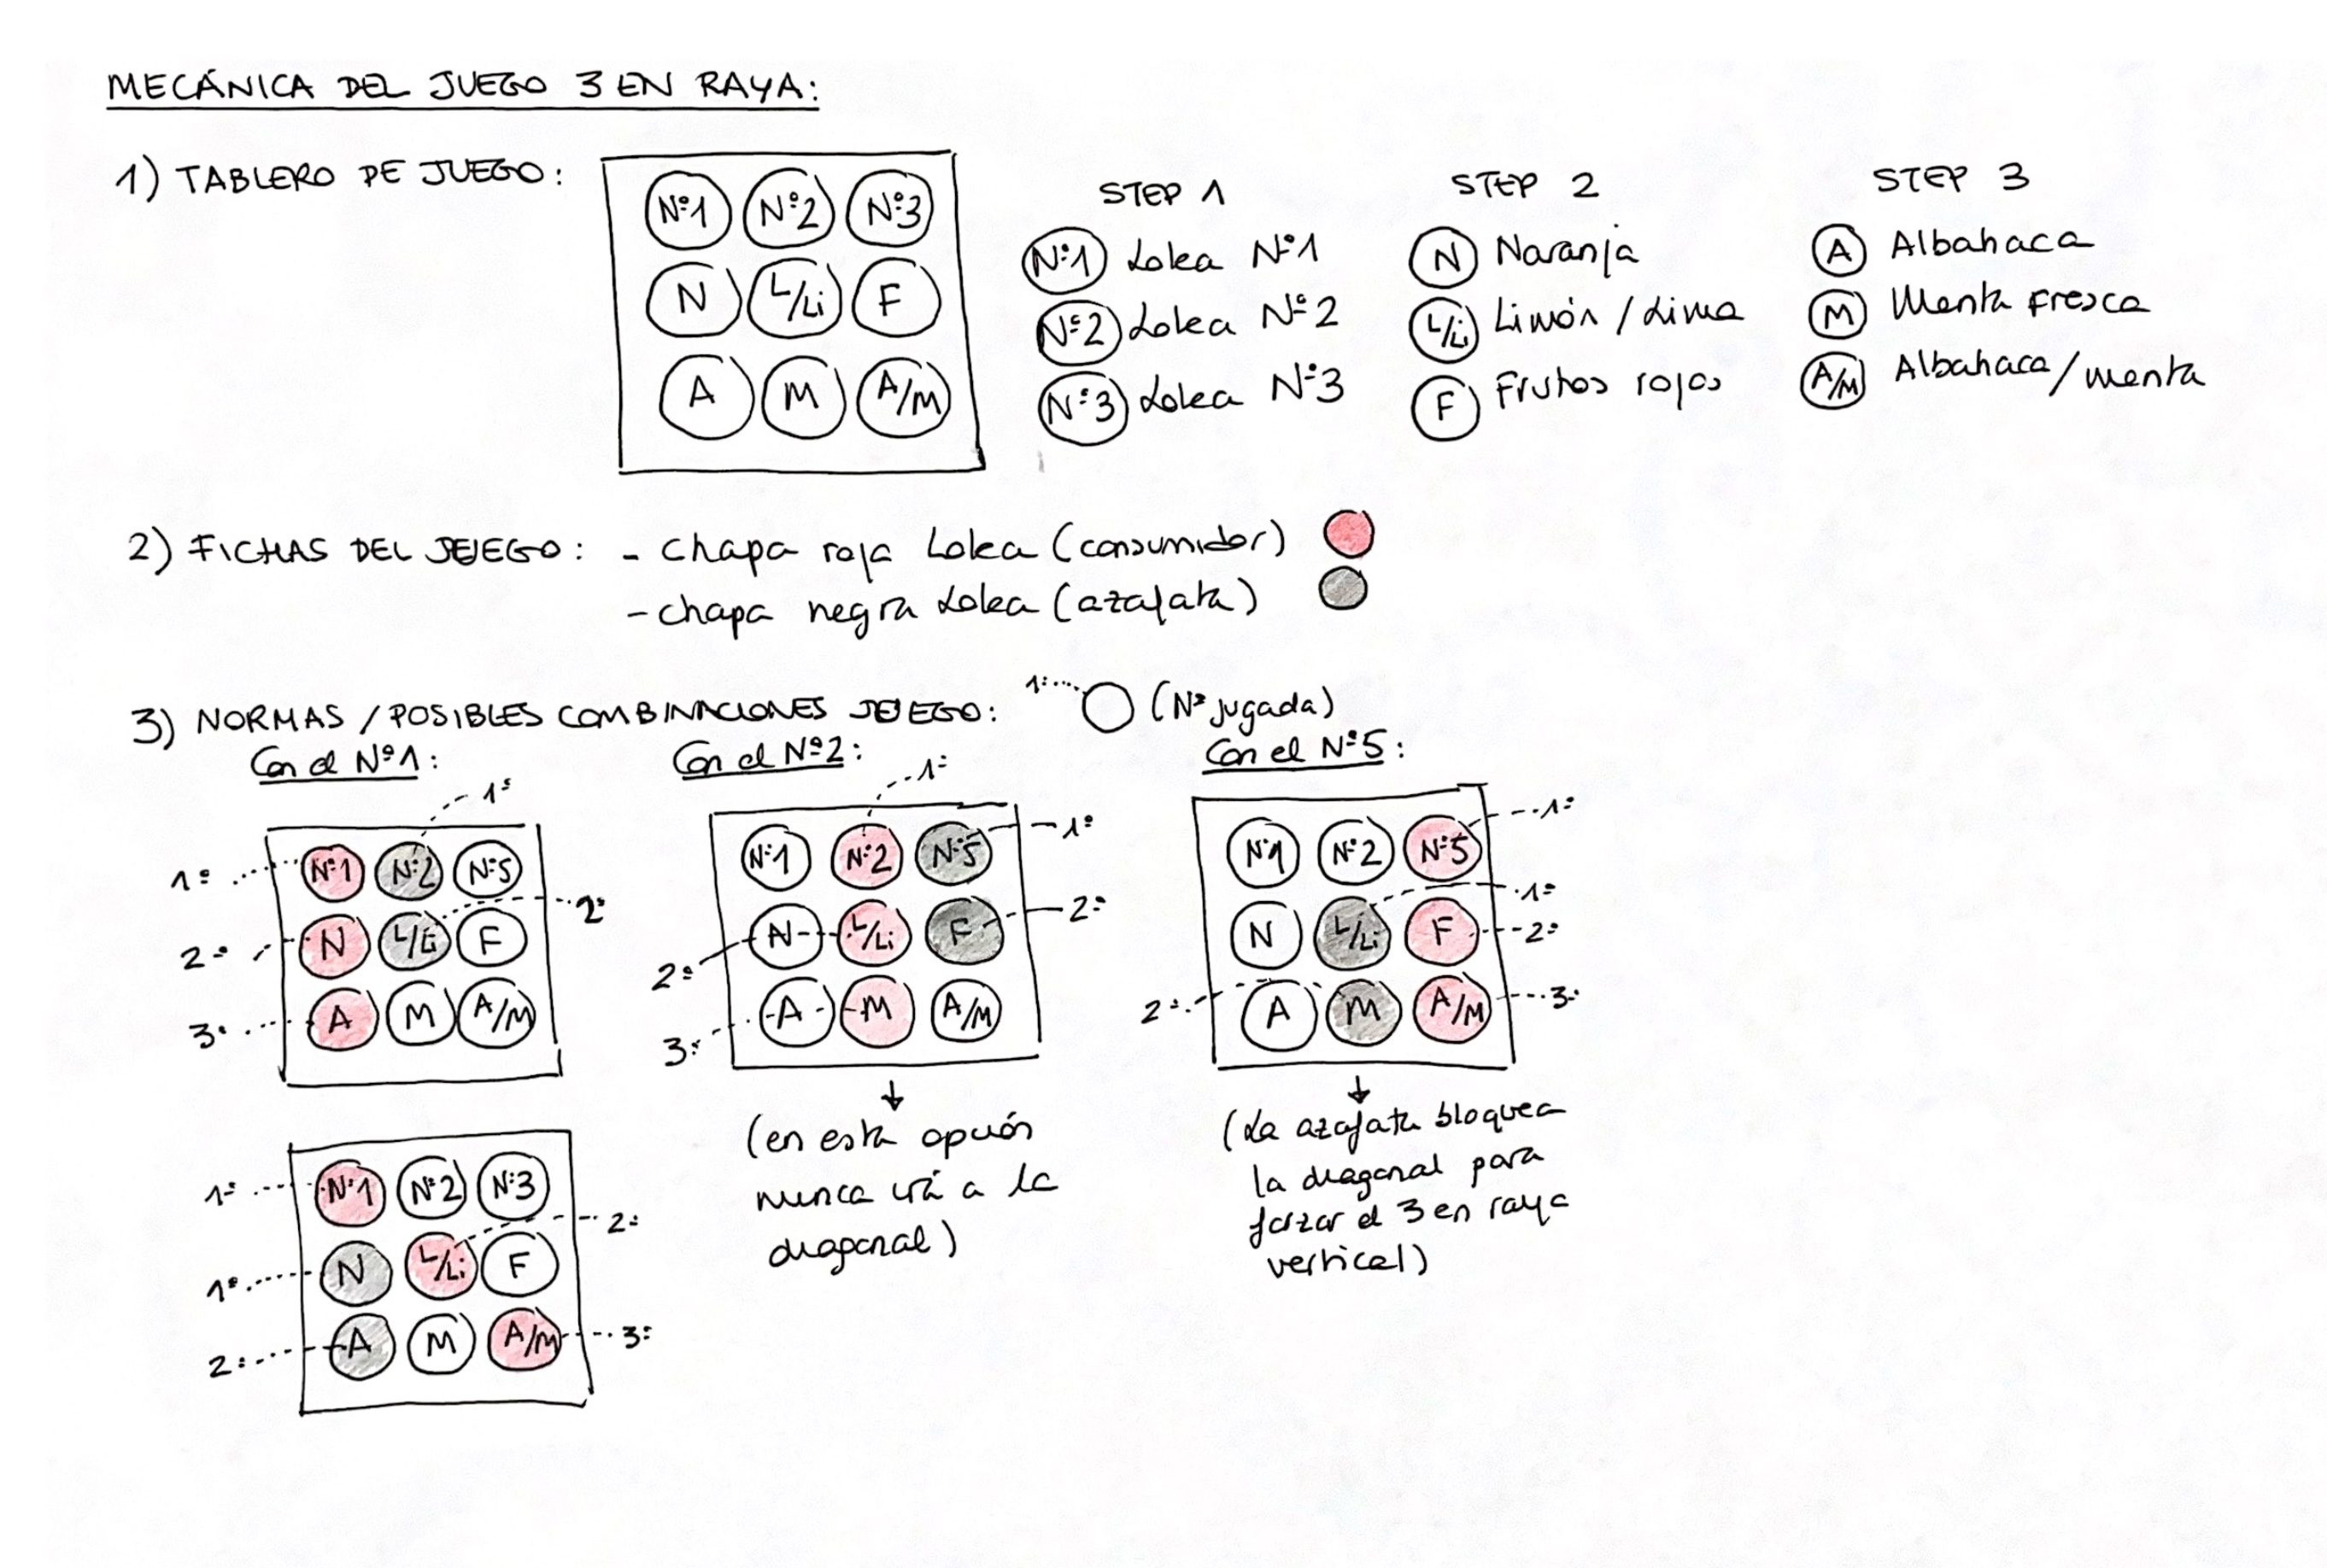 MECÁNICA DEL JUEGO 3 EN RAYA:
1) TABLERO DE JUEGO:
Nº1 Nº2 Nº3
N L/Li F
A M A/M
STEP 1
Nº1 Lolea Nº1
Nº2 Lolea Nº2
Nº3 Lolea Nº3
STEP 2
N Naranja
L/Li Limón / Lima
F Frutos rojos
STEP 3
A Albahaca
M Menta fresca
A/M Albahaca/menta
2) FICHAS DEL JUEGO: - Chapa roja Lolea (consumidor)
- chapa negra Lolea (azafata)
3) NORMAS / POSIBLES COMBINACIONES JUEGO: 1º (Nº jugada)
Con el Nº1:
1º
1º Nº1 Nº2 Nº5
2º N L/Li F 2º
3º A M A/M
1º Nº1 Nº2 Nº3
1º N L/Li F 2º
2º A M A/M 3º
Con el Nº2:
1º
Nº1 Nº2 Nº5 1º
2º N L/Li F 2º
3º A M A/M
(en esta opción
nunca irá a la
diagonal)
Con el Nº5:
Nº1 Nº2 Nº5 1º
1º
N L/Li F 2º
2º A M A/M 3º
(La azafata bloquea
la diagonal para
forzar el 3 en raya
vertical)